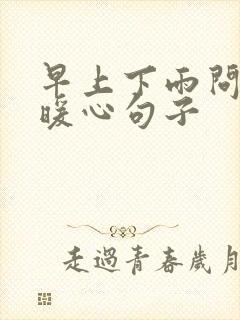 早上下雨問
暖心句子
走過青春歲月